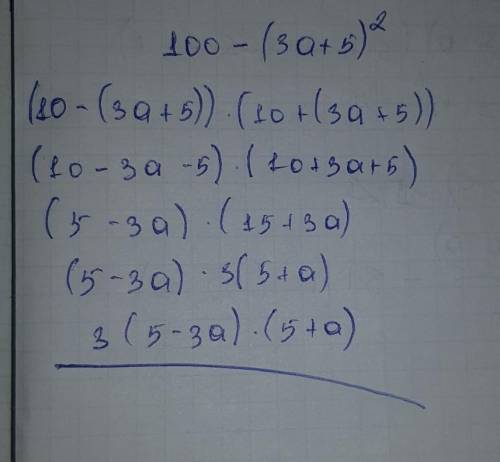 100 - (3a+5)²
(10 - (3a+5)) · (10 + (3a+5))
(10 - 3a - 5) · (10+3a+5)
(5 - 3a) · (15+3a)
(5 - 3a) · 3(5+a)
3(5-3a) · (5+a)